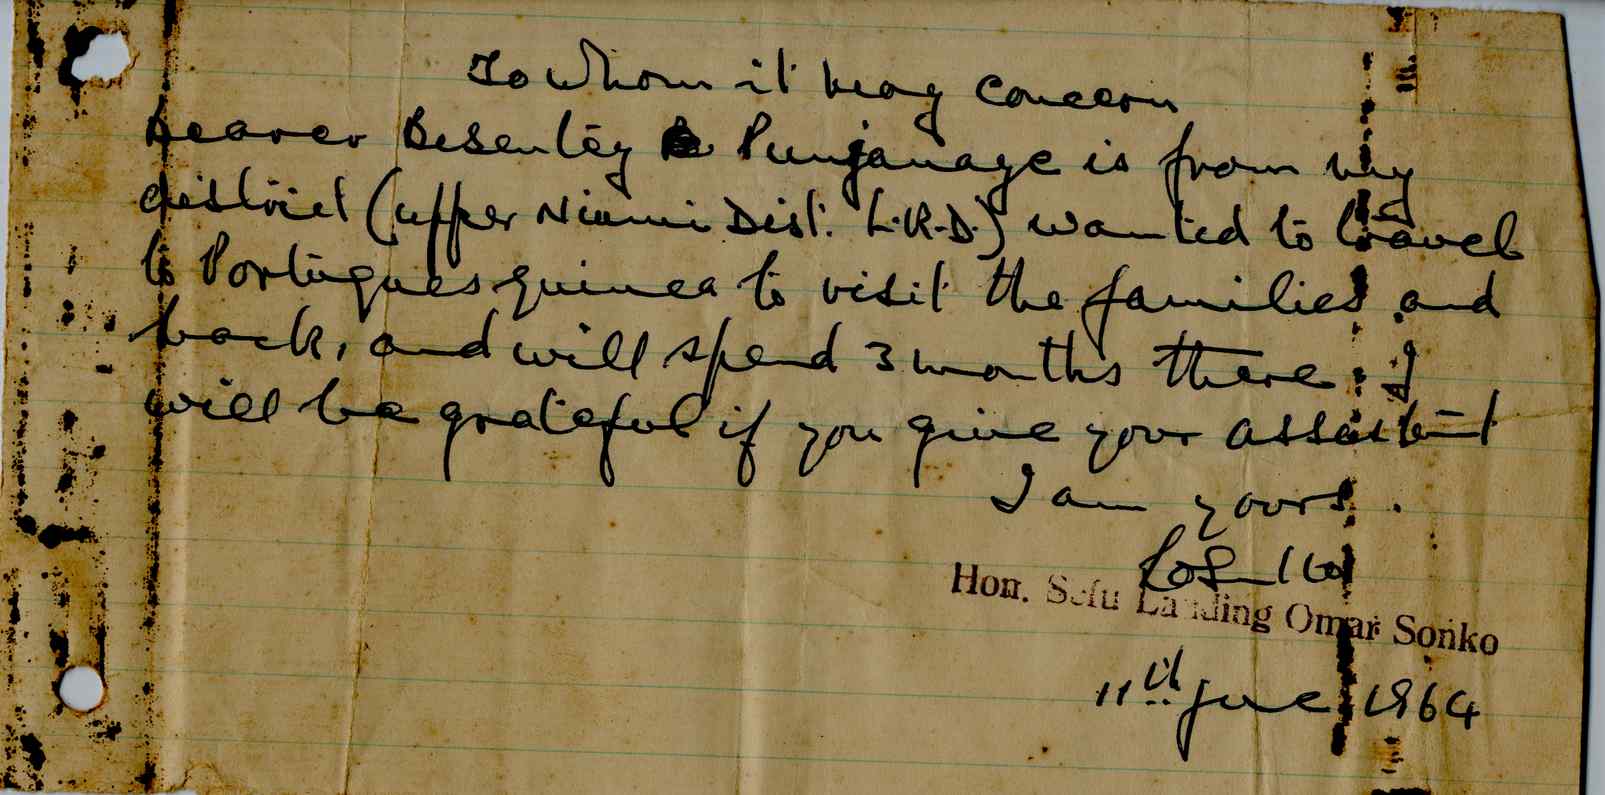 To Whom it may concern
bearer Besenteg Punjanage is from my
district (upper Niumi Dist. L.R.D.) wanted to travel
to Portugues guinea to visit the families and
back, and will spend 3 months there. I
will be grateful if you give your assistint
I am yours.
Hon. Sefu Landing Omar Sonko
11th June 1964